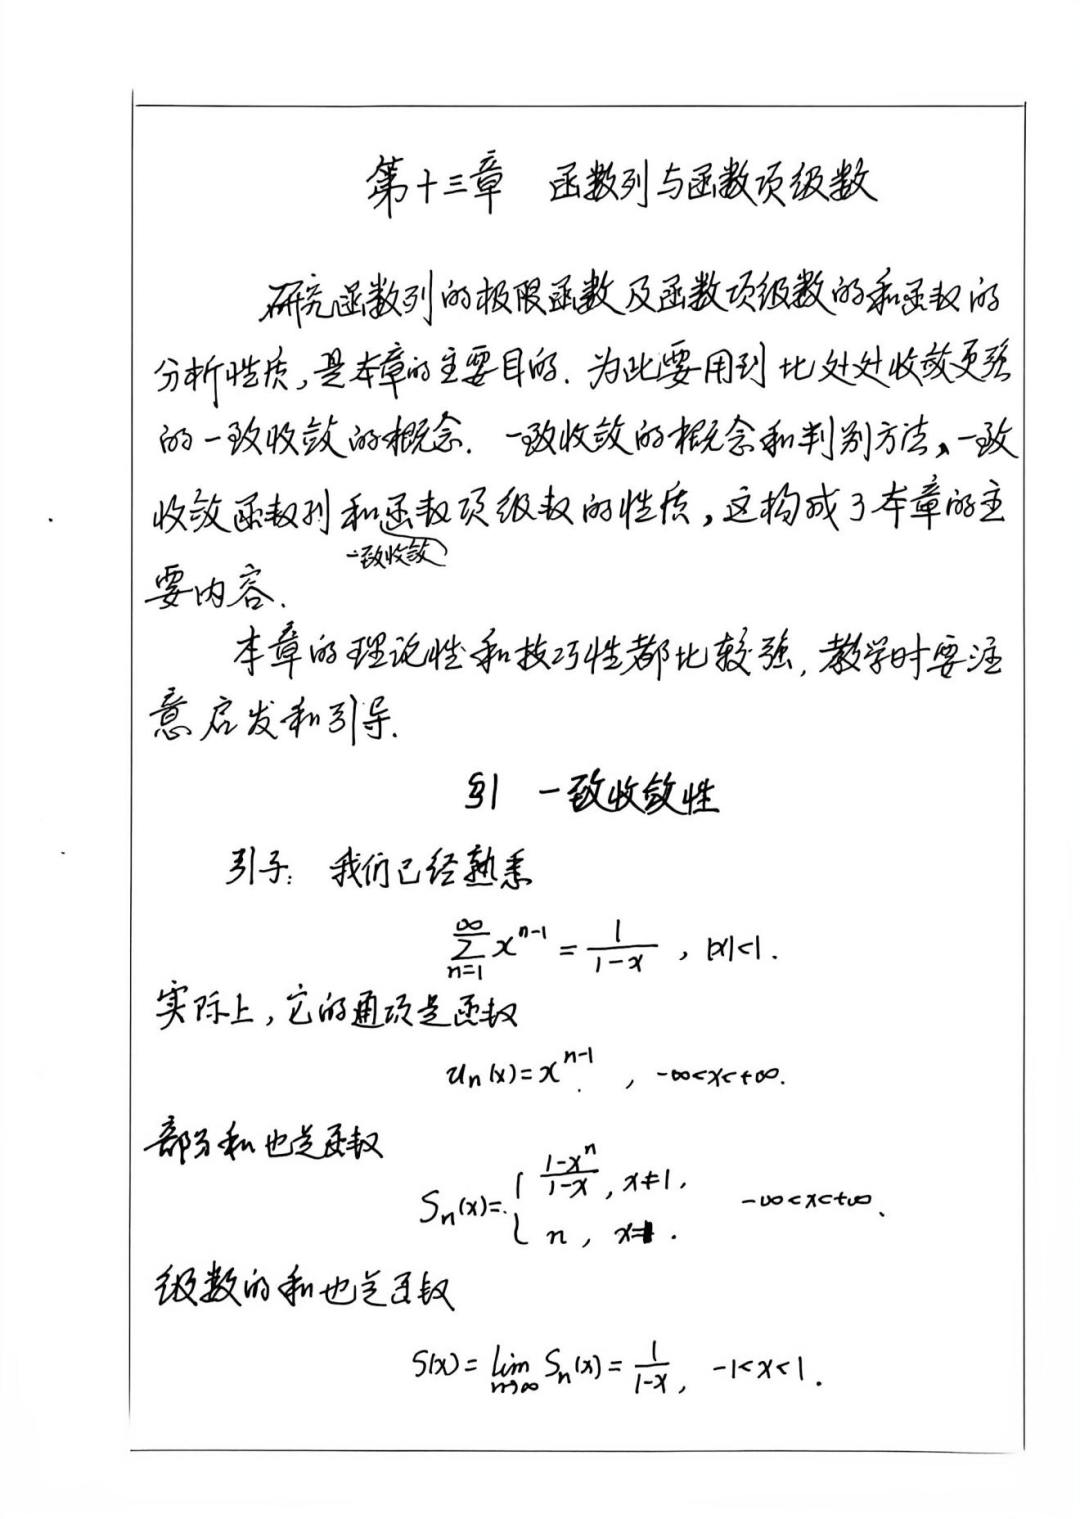 第十三章 函数列与函数项级数
研究函数列的极限函数及函数项级数的和函数的
分析性质,是本章的主要目的.为此要用到比处处收敛更强
的一致收敛的概念. 一致收敛的概念和判别方法、一致
收敛函数列和函数项级数的性质,这构成了本章的主
一致收敛
要内容.
本章的理论性和技巧性都比较强,教学时要注
意启发和引导.
§1 一致收敛性
引子: 我们已经熟悉
∑_{n=1}^{∞} x^{n-1} = \frac{1}{1-x} , |x|<1.
实际上,它的通项是函数
u_n(x)=x^{n-1} , -∞<x<+∞.
部分和也是函数
S_n(x)= { \frac{1-x^n}{1-x}, x≠1, -∞<x<+∞、
n, x=1.
级数的和也是函数
S(x)= lim_{n→∞} S_n(x)= \frac{1}{1-x}, -1<x<1.